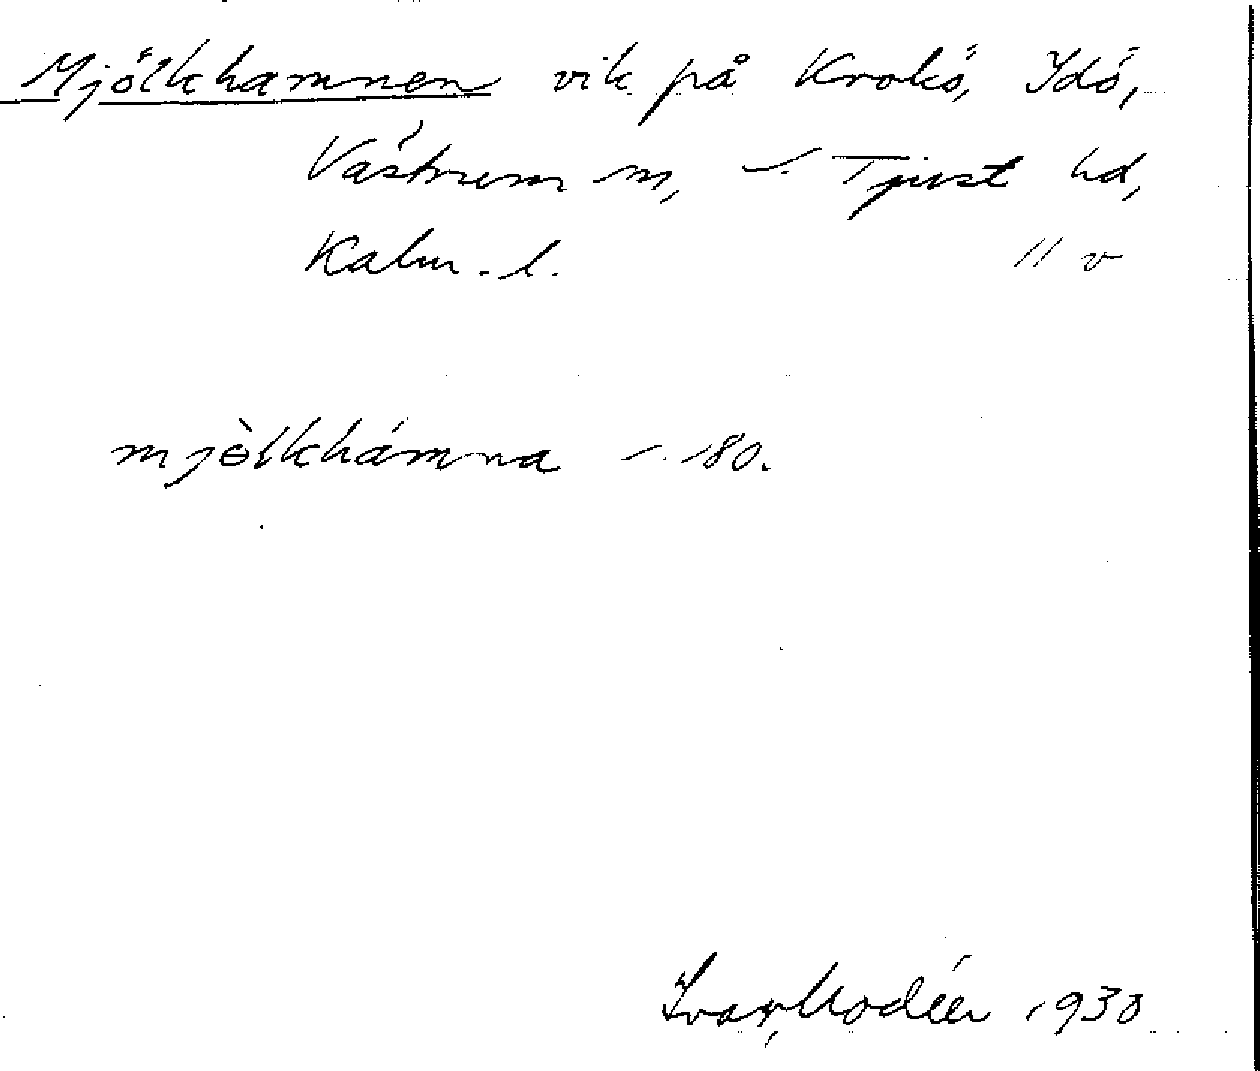 Mjölkhamnen vik på Krokö, Idö,
Västrum sn, S. Tjust hd,
Kalm. l. 11 v
mjòlkhámna s. 180.
Ivar Modéer 1930